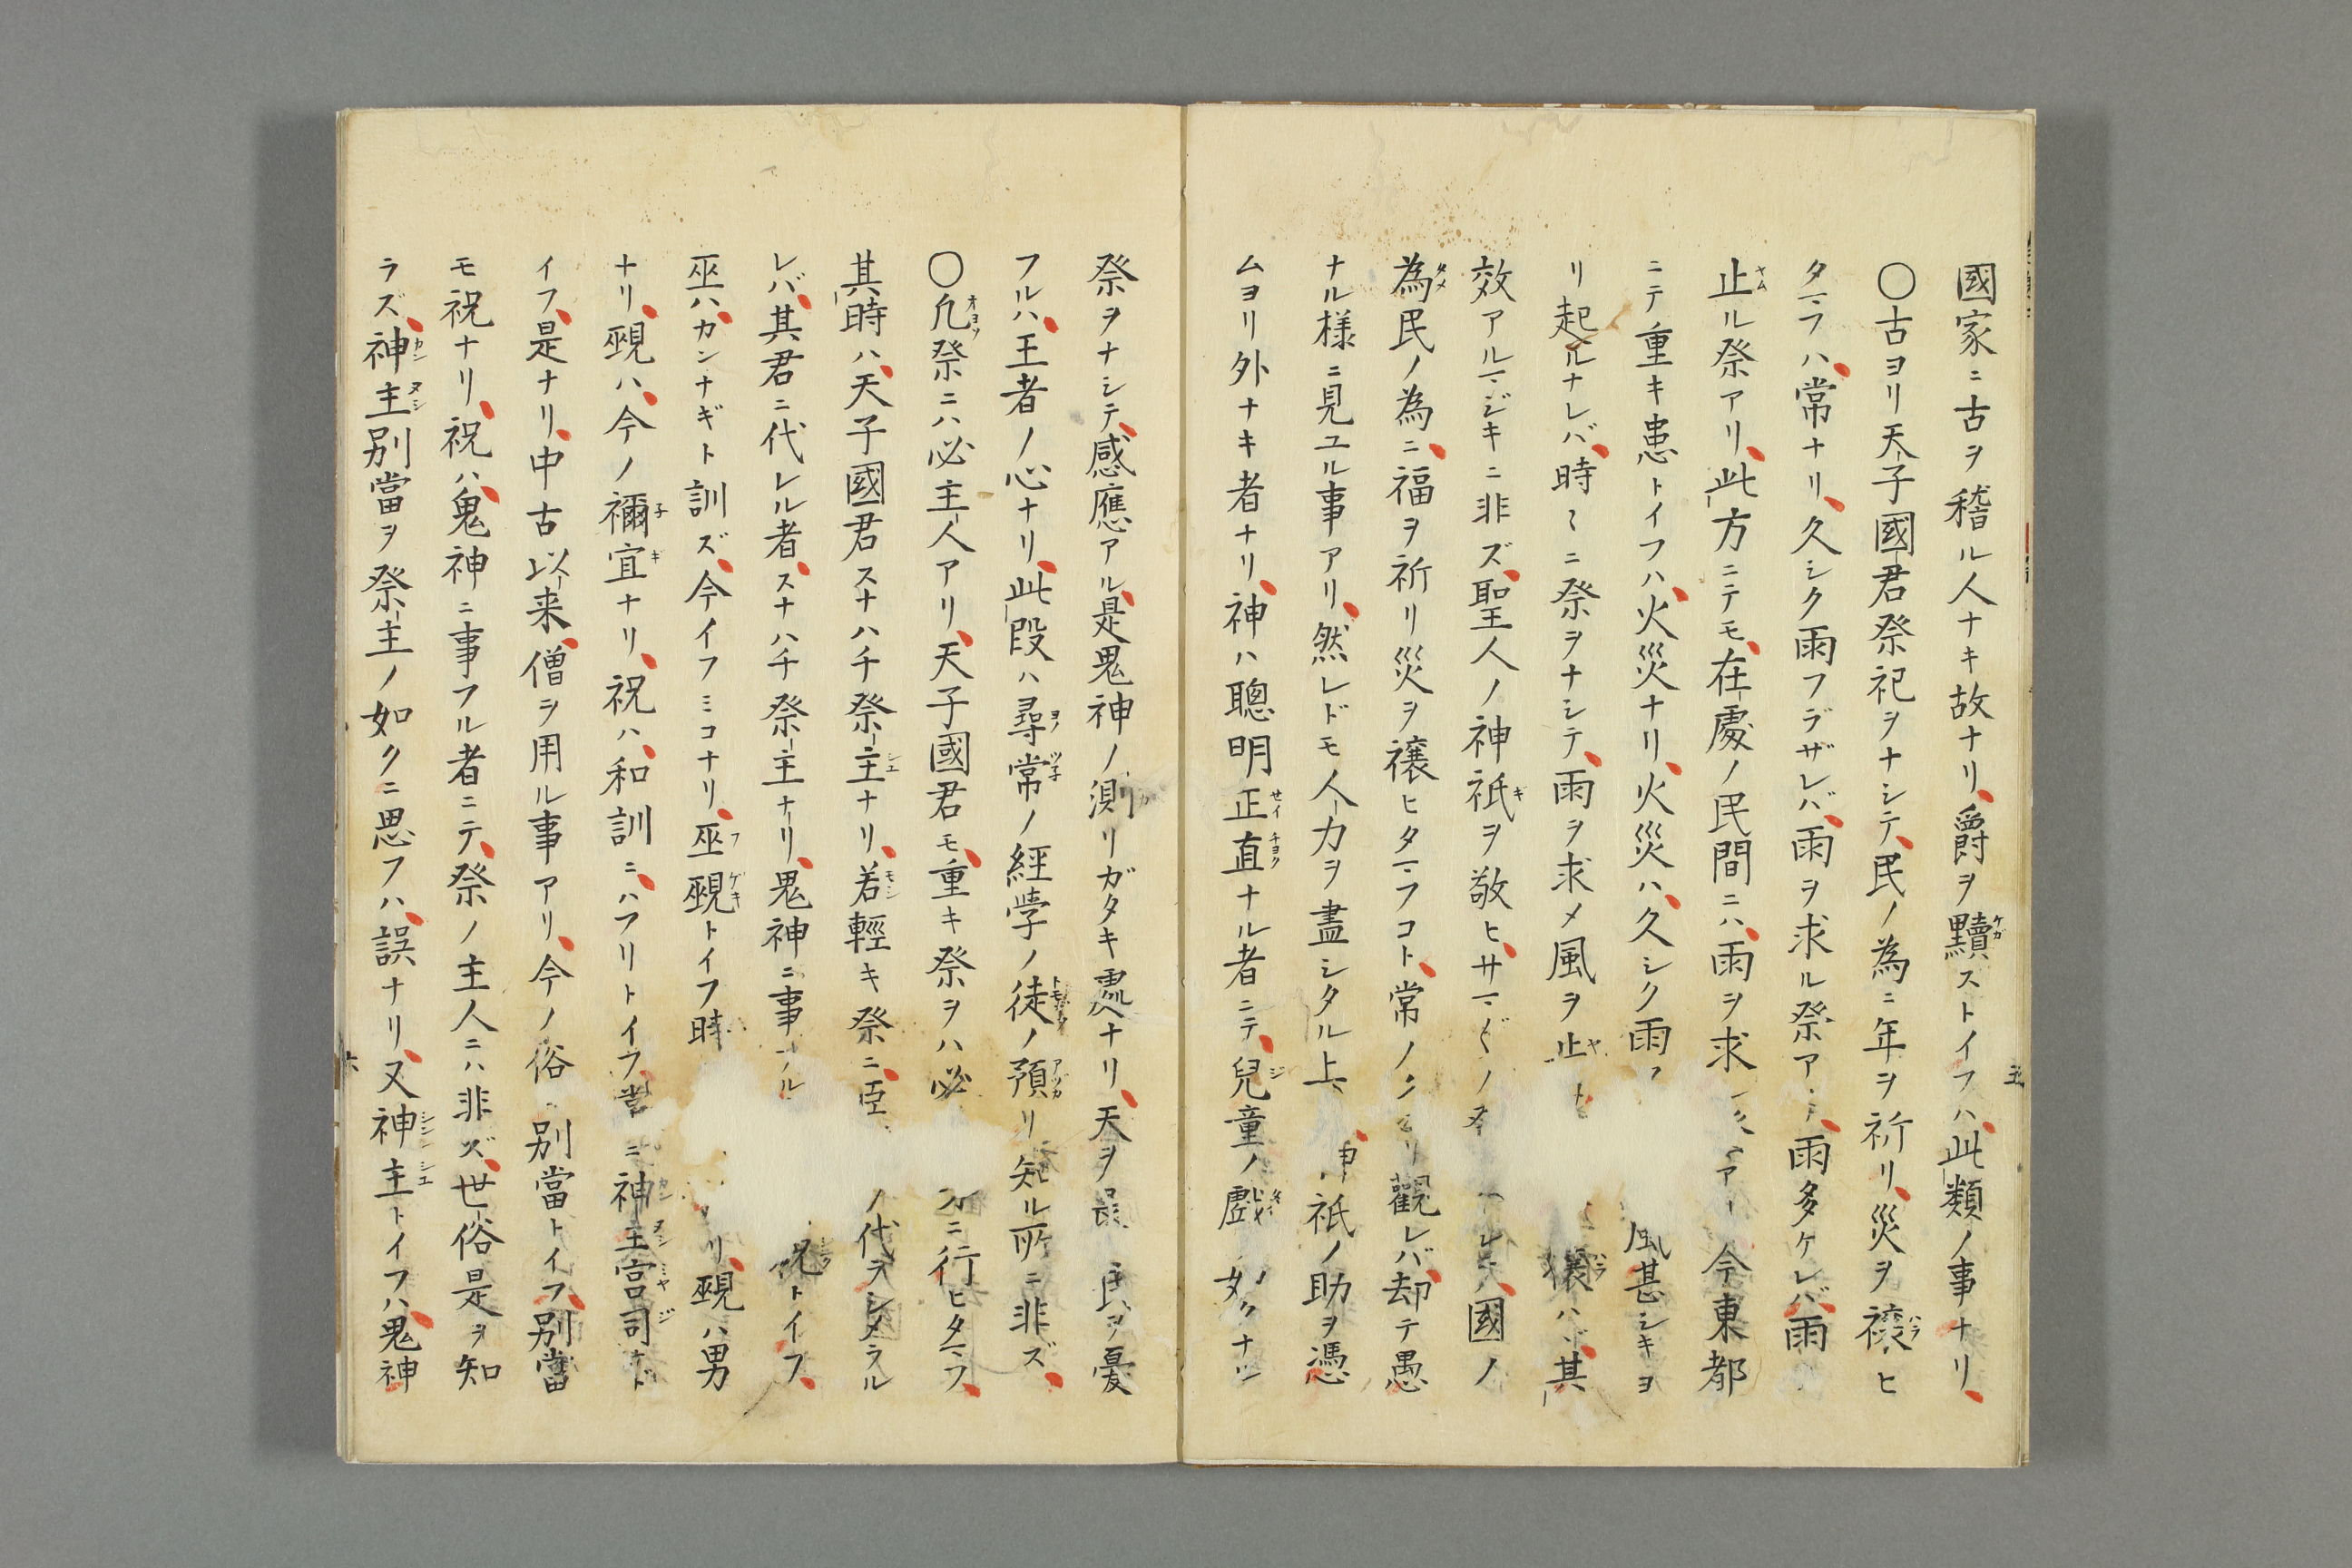 國家ニ古ヲ稽ル人ナキ故ナリ、爵ヲ黷ストイフハ、此類ノ事ナリ、
〇古ヨリ天子國君祭祀ヲナシテ、民ノ為ニ年ヲ祈リ、災ヲ禳ヒ
タマフハ、常ナリ、久シク雨フラザレバ、雨ヲ求ル祭ア、雨多ケレバ、雨
止ル祭アリ、此方ニテモ、在處ノ民間ニハ、雨ヲ求 今東都
ニテ重キ患トイフハ、火災ナリ、火災ハ、久シク雨フ 風甚シキヨ
リ起ルナレバ、時〻ニ祭ヲナシテ、雨ヲ求メ風ヲ止 禳ハヾ、其
效アルマジキニ非ズ、聖人ノ神祇ヲ敬ヒ、サマ〴〵ノ 國ノ
為民ノ為ニ、福ヲ祈リ災ヲ禳ヒタマフコト、常ノ 觀レバ、却テ愚
ナル様ニ見ユル事アリ、然レドモ人力ヲ盡シタル上 祇ノ助ヲ憑
ムヨリ外ナキ者ナリ、神ハ聰明正直ナル者ニテ、兒童ノ戲 如クナル
祭ヲナシテ、感應アル、是鬼神ノ測リガタキ處ナリ、天ヲ 民ヲ憂
フルハ、王者ノ心ナリ、此段ハ尋常ノ經學ノ徒ノ預リ知ル所ニ非ズ、
〇凢祭ニハ必主人アリ、天子國君モ、重キ祭ヲハ必 ニ行ヒタマフ、
其時ハ、天子國君スナハチ祭主ナリ、若輕キ祭ニ、臣 ノ代ラシメラル
レバ、其君ニ代レル者、スナハチ祭主ナリ、鬼神ニ事 祝トイフ、
巫ハ、カンナギト訓ズ、今イフミコナリ、巫覡トイフ時 リ、覡ハ男
ナリ、覡ハ、今ノ禰宜ナリ、祝ハ、和訓ニ、ハフリトイフ、當 ニ神主宮司ナド
イフ、是ナリ、中古以来、僧ヲ用ル事アリ、今ノ俗 別當トイフ、別當
モ祝ナリ、祝ハ、鬼神ニ事フル者ニテ、祭ノ主人ニハ非ズ、世俗是ヲ知
ラズ、神主別當ヲ祭主ノ如クニ思フハ、誤ナリ、又神主トイフハ、鬼神